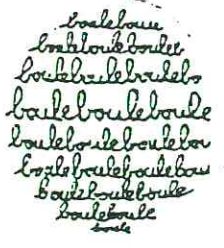 bouleboule
boulebouleboule
boulebouleboulebo
boulebouleboule
boulebouleboulebou
boulebouleboulebou
boulebouleboule
bouleboule
boule